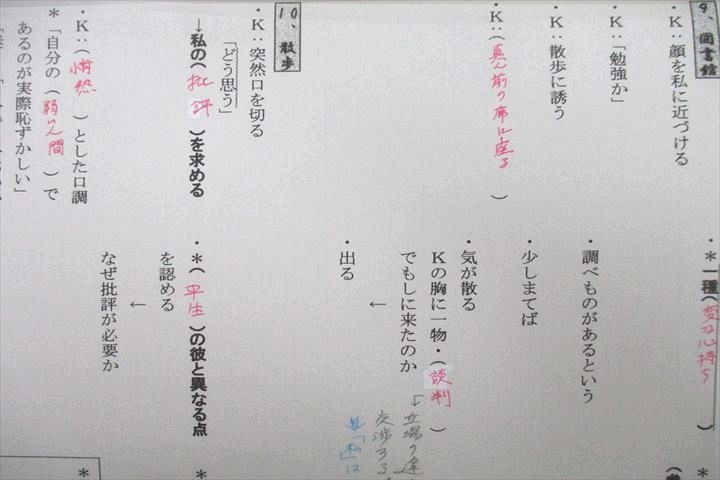 9、図書館
・K：顔を私に近づける
・K：「勉強か」
・K：散歩に誘う
・K：（真ん前の席に座る）
・＊一種（変な心持ち）
・調べものがあるという
・少しまてば
・気が散る
Kの胸に一物・（談判）
でもしに来たのか
←
・出る
↓立場の違
交渉する
「私」は
10、散歩
・K：突然口を切る
「どう思う」
→私の（批評）を求める
・＊（平生）の彼と異なる点
を認める
←
なぜ批評が必要か
・K：（悄然）とした口調
＊「自分の（弱い人間）で
あるのが実際恥ずかしい」
＊
＊
＊